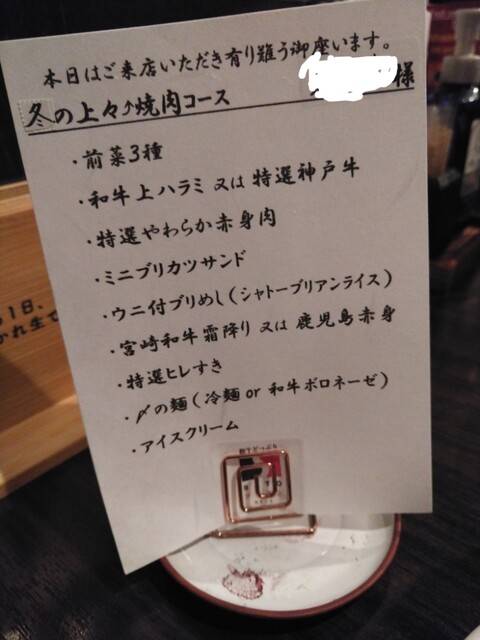 本日はご来店いただき有り難う御座います。
様
冬の上々⤴焼肉コース
・前菜3種
・和牛上ハラミ 又は 特選神戸牛
・特選やわらか赤身肉
・ミニブリカツサンド
・ウニ付ブリめし(シャトーブリアンライス)
・宮崎和牛霜降り 又は 鹿児島赤身
・特選ヒレすき
・〆の麺(冷麺 or 和牛ボロネーゼ)
・アイスクリーム